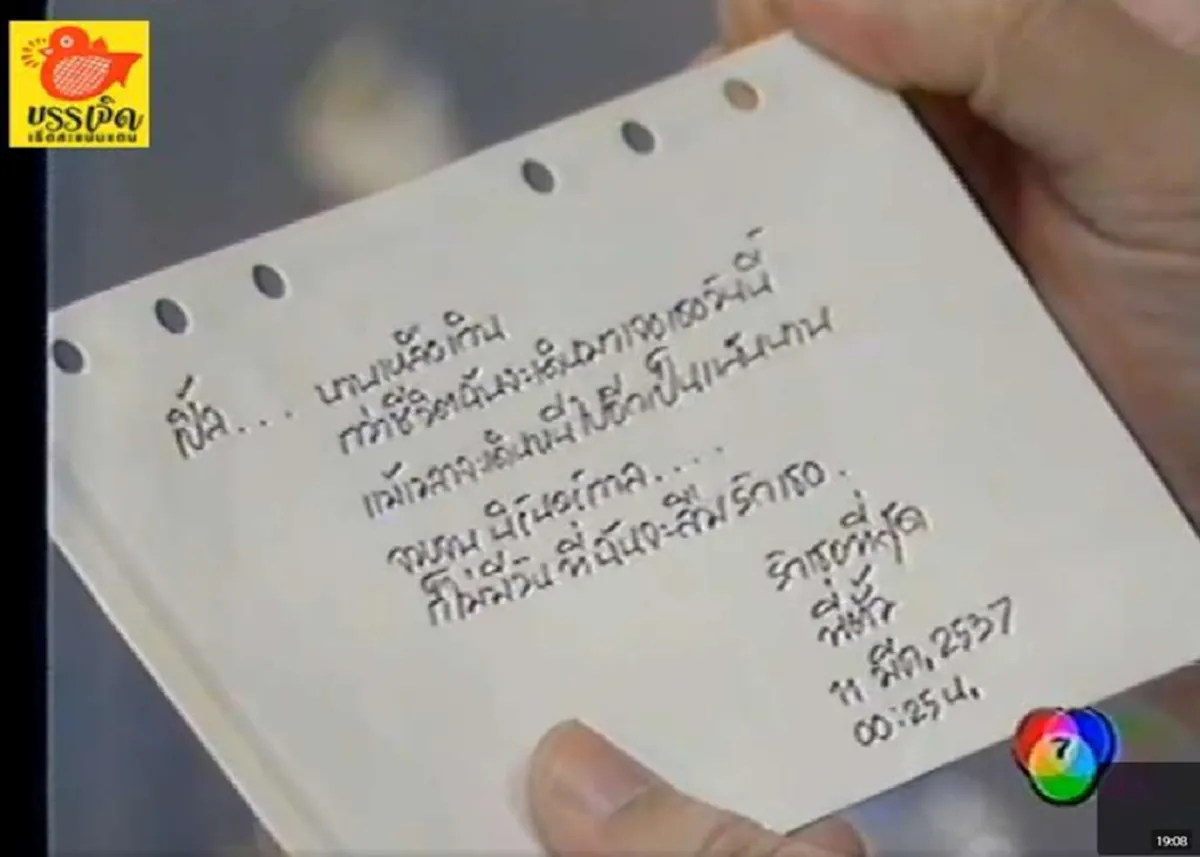 บรรเจิด
เปิ้ล.... นานเหลือเกิน
กว่าชีวิตฉันจะเดินมาเจอเธอวันนี้
แม้เวลาจะเดินหนีไปอีกเป็นแสนนาน
จวบจน นิรันดร์กาล....
ก็ไม่มีวัน ที่ฉันจะลืม รักเธอ.
รักเธอที่สุด
พี่ตั้ว
11 มีค. 2537
00:25 น.
7
19:08